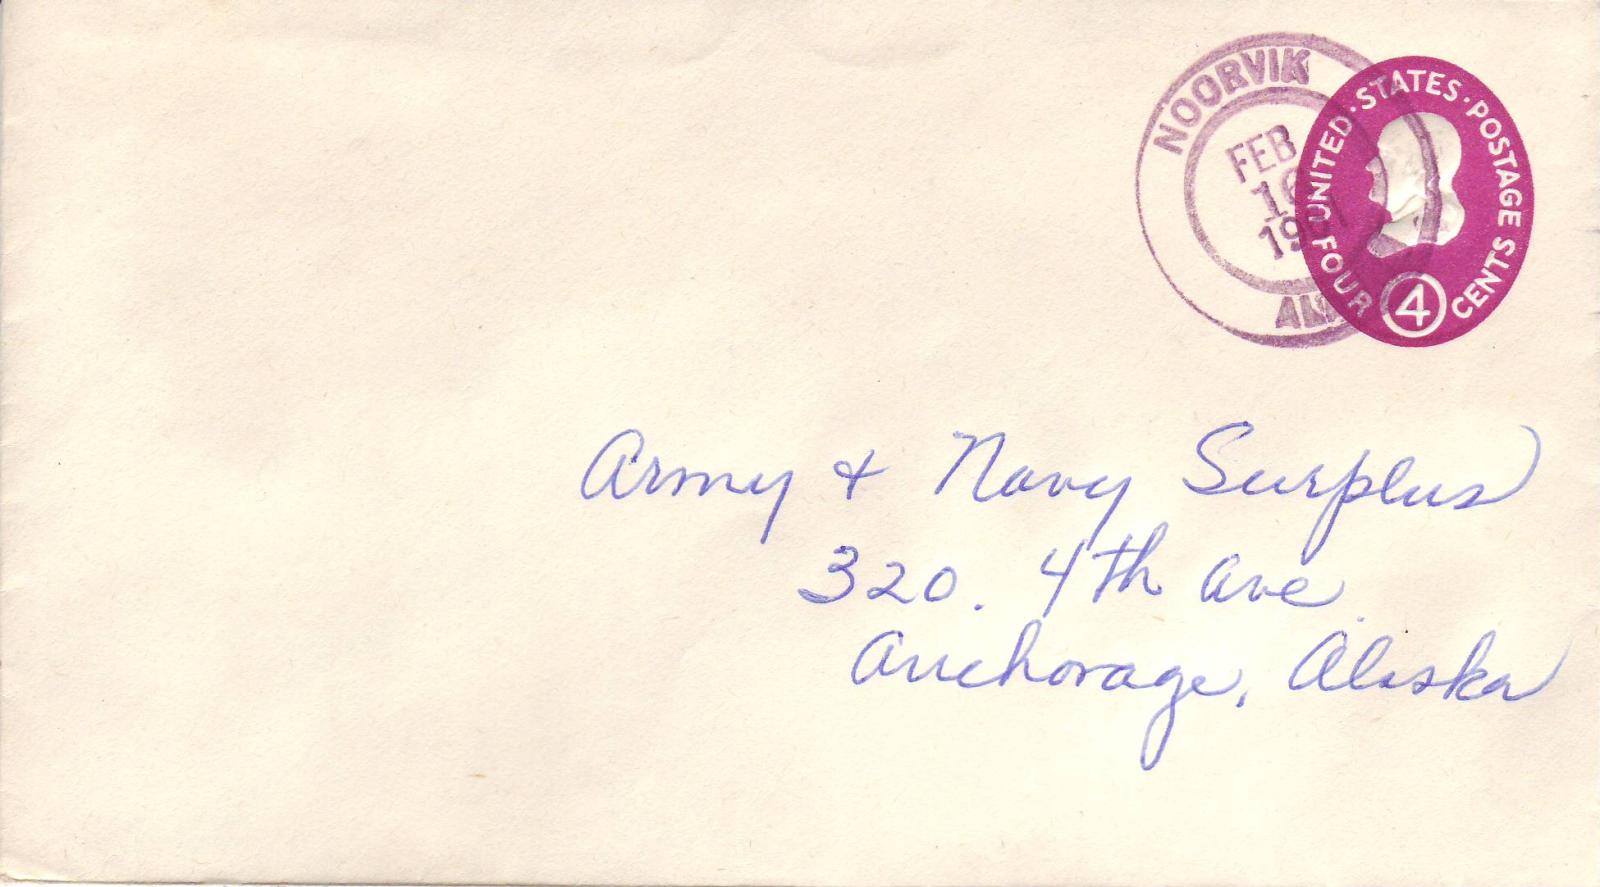 NOORVIK
FEB
16
ALASKA
UNITED · STATES · POSTAGE
FOUR 4 CENTS
Army & Navy Surplus
320. 4th Ave
Anchorage, Alaska